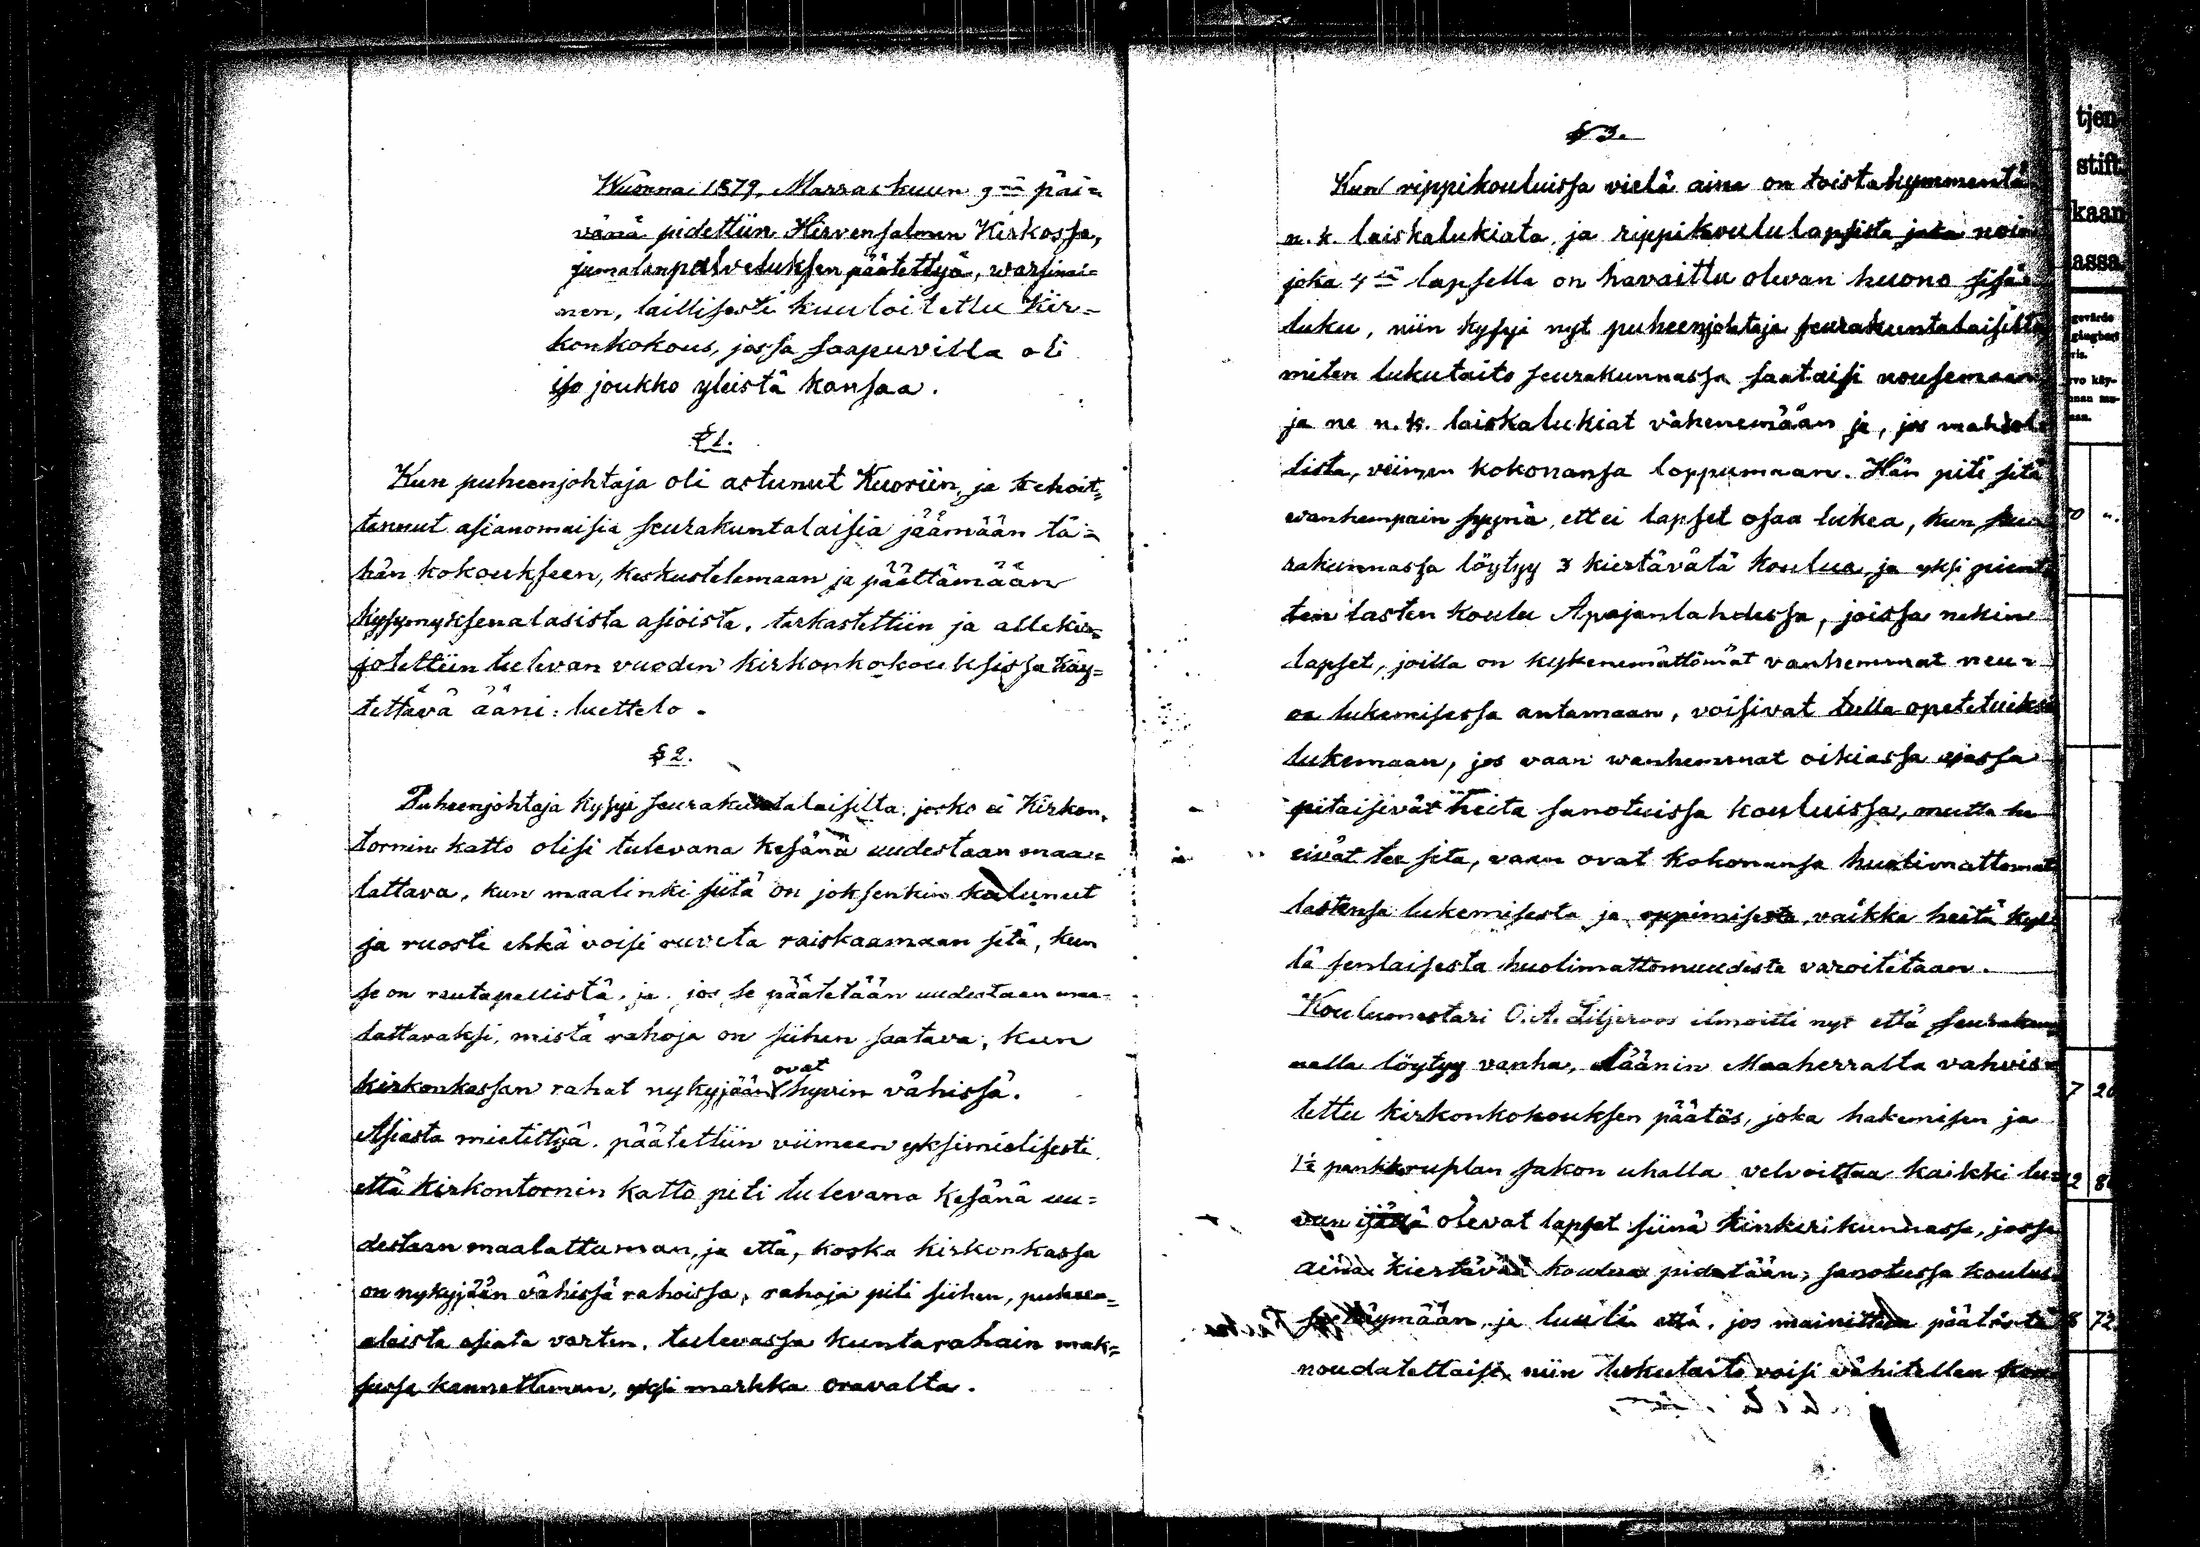 Wuonna 1879, Marraskuun 9nä päi=
vänä pidettiin Hirvensalmen Kirkossa,
jumalanpalveluksen päätettyä, warsinai=
nen, laillisesti kuuloitettu Kir=
konkokous, jossa saapuvilla oli
iso joukko yleistä kansaa.
§ 1.
Kun puheenjohtaja oli astunut Kuoriin, ja kehoit=
tannut asianomaisia seurakuntalaisia jäämään tä=
hän kokoukseen, keskustelemaan ja päättämään
kysymyksenalasista asioista, tarkastettiin ja allekir=
jotettiin tulevan vuoden kirkonkokouksissa käy=
tettävä ääni-luettelo.
§ 2.
Puheenjohtaja kysyi seurakuntalaisilta, josko ei Kirkon=
tornin katto olisi tulevana kesänä uudestaan maa=
lattava, kun maalinki siitä on joksenkin kulunut
ja ruoste ehkä voisi ruveta raiskaamaan sitä, kun
se on rautapellistä, ja jos se päätetään uudestaan maa=
lattavaksi, mistä rahoja on siihen saatava, kun
kirkonkassan rahat nykyjään ovat hyvin vähissä.
Asiasta mietittyä, päätettiin viimeen yksimielisesti,
että kirkontornin katto piti tulevana kesänä uu=
destaan maalattaman, ja että, koska kirkonkassa
on nykyjään vähissä rahoissa, rahoja piti siihen, puheen=
alaista asiata varten, tulevassa kuntarahain mak=
sussa kannettaman, yksi markka oravalta.
§ 3.
Kun rippikouluissa vielä aina on toistakymmentä
n. k. laiskalukiata, ja rippikoululapsista noin
joka 4nä lapsella on havaittu olevan huono sisä=
luku, niin kysyi nyt puheenjohtaja seurakuntalaisilta
miten lukutaito seurakunnassa saataisi nousemaan
ja ne n. k. laiskalukiat vähenemään ja, jos mahdol=
lista, viimen kokonansa loppumaan. Hän piti sitä
wanhempain syynä, ettei lapset osaa lukea, kun seu=
rakunnassa löytyy 3 kiertävätä koulua ja yksi pient=
ten lasten koulu Apajanlahdessa, joissa nekin
lapset, joilla on kykenemättömät vanhemmat neu=
oa lukemisessa antamaan, voisivat tulla opetetuiksi
lukemaan, jos vaan wanhemmat oikiassa ajassa
pitäisivät heitä sanotuissa kouluissa, mutta he
eivät tee sitä, vaan ovat kokonansa huolimattomat
lastensa lukemisesta ja oppimisesta, vaikka heitä kyl=
lä senlaisesta huolimattomuudesta varoitetaan.
Koulumestari O. A. Liljeroos ilmoitti nyt että seurakun=
nalla löytyy vanha, läänin Maaherralta vahvis=
tettu kirkonkokouksen päätös, joka hakemisen ja
1½ pankkoruplan sakon uhalla velvoittaa kaikki lu=
vun ijällä olevat lapset siinä kinkerikunnassa, jossa
aina kiertävää koulua pidetään, sanotussa koulus=
sa käymään, ja luuli että, jos mainittua päätöstä
noudatettaisi, niin lukutaito voisi vähitellen
tjen
stift
kaan
assa.